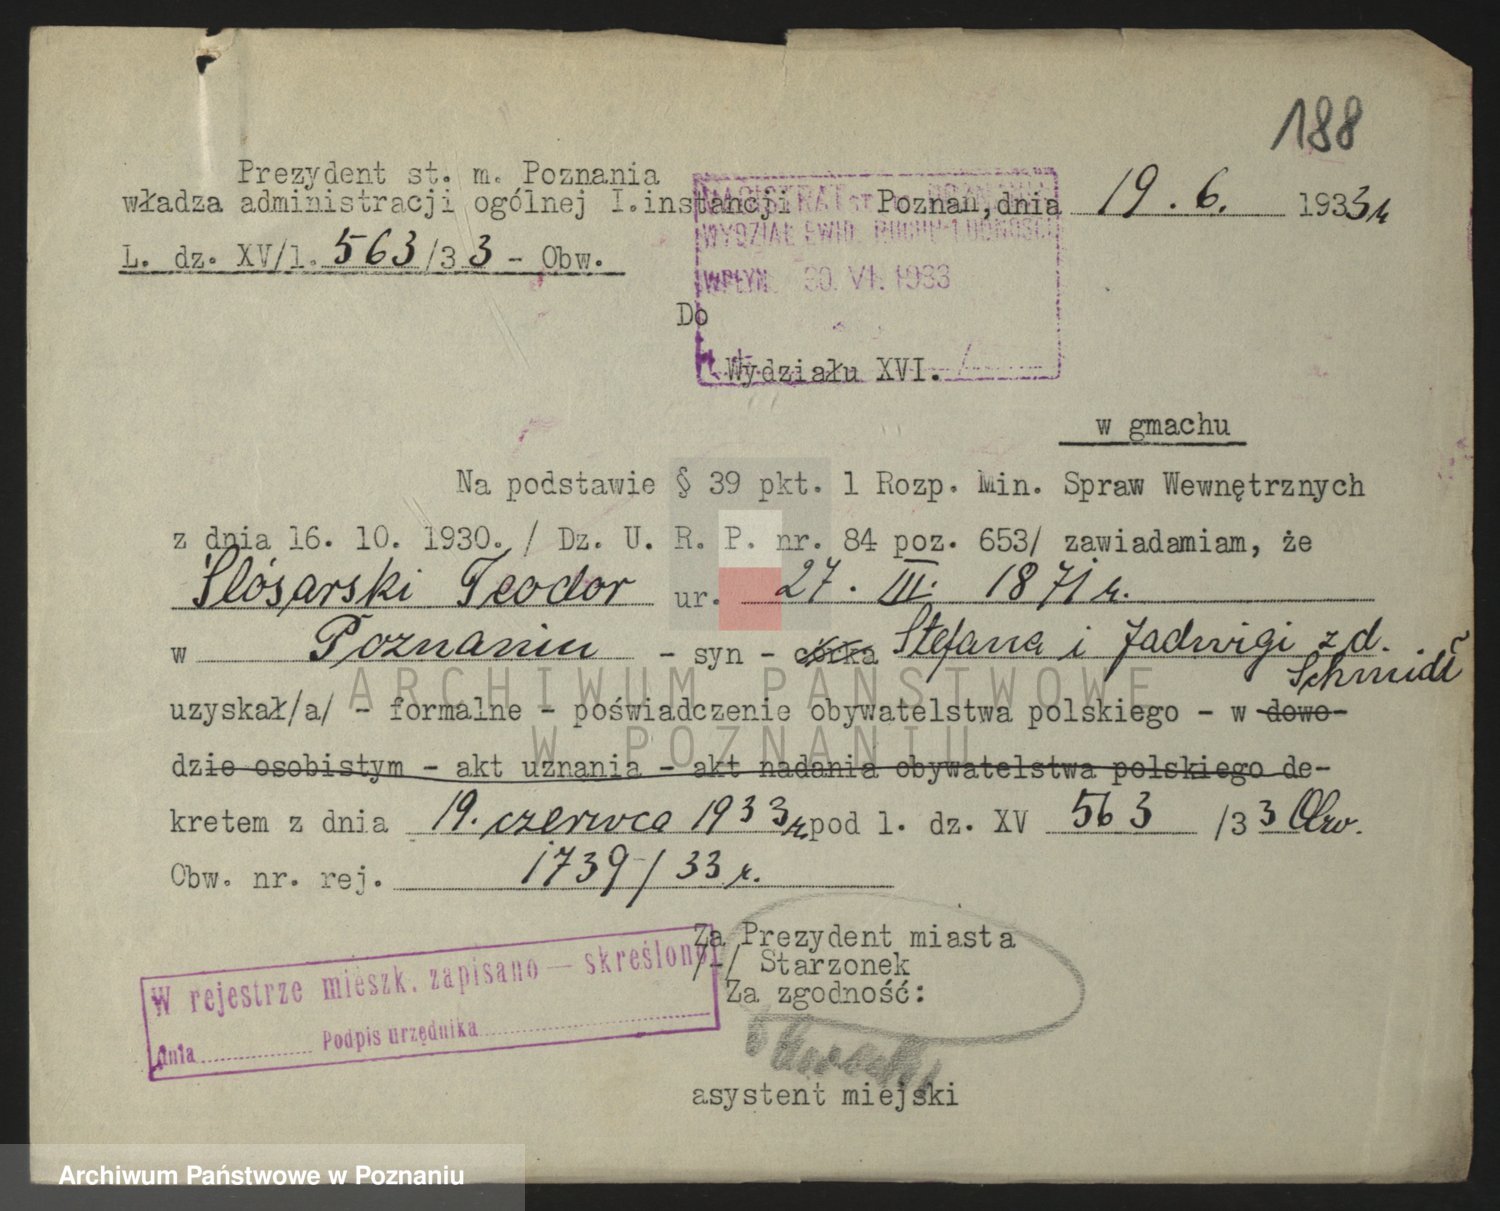 188
Prezydent st. m. Poznania
władza administracji ogólnej I.instancji Poznań, dnia 19. 6. 1933 r
L. dz. XV/1. 563/33 - Obw.
MAGISTRAT ST. M. POZNANIA
WYDZIAŁ EWID. RUCHU LUDNOŚCI
WPŁYN. 30. VI. 1933
Do
Wydziału XVI.
w gmachu
Na podstawie § 39 pkt. 1 Rozp. Min. Spraw Wewnętrznych
z dnia 16. 10. 1930. / Dz. U. R. P. nr. 84 poz. 653/ zawiadamiam, że
Ślósarski Teodor ur. 27. III. 1871 r.
w Poznaniu - syn - córka Stefana i Jadwigi z d.
Schmidt
uzyskał/a/ - formalne - poświadczenie obywatelstwa polskiego - w dowo-
dzie osobistym - akt uznania - akt nadania obywatelstwa polskiego de-
kretem z dnia 19. czerwca 1933 r. pod l. dz. XV 563 /33 Obw.
Obw. nr. rej. 1739/33 r.
Za Prezydent miasta
/-/ Starzonek
Za zgodność:
asystent miejski
W rejestrze mieszk. zapisano — skreślono
dnia Podpis urzędnika
ARCHIWUM PAŃSTWOWE
W POZNANIU
Archiwum Państwowe w Poznaniu